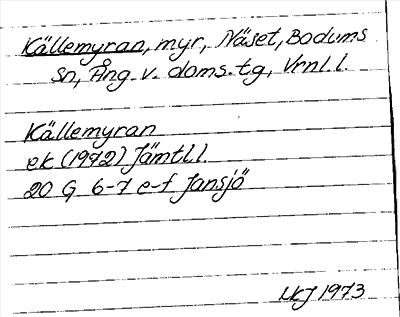 Källemyran, myr, Näset, Bodums
sn, Ång. v. doms. tg, Vrnl. l.
Källemyran
ek (1972) Jämtl. l.
20 G 6-7 e-f Jansjö
LKJ 1973